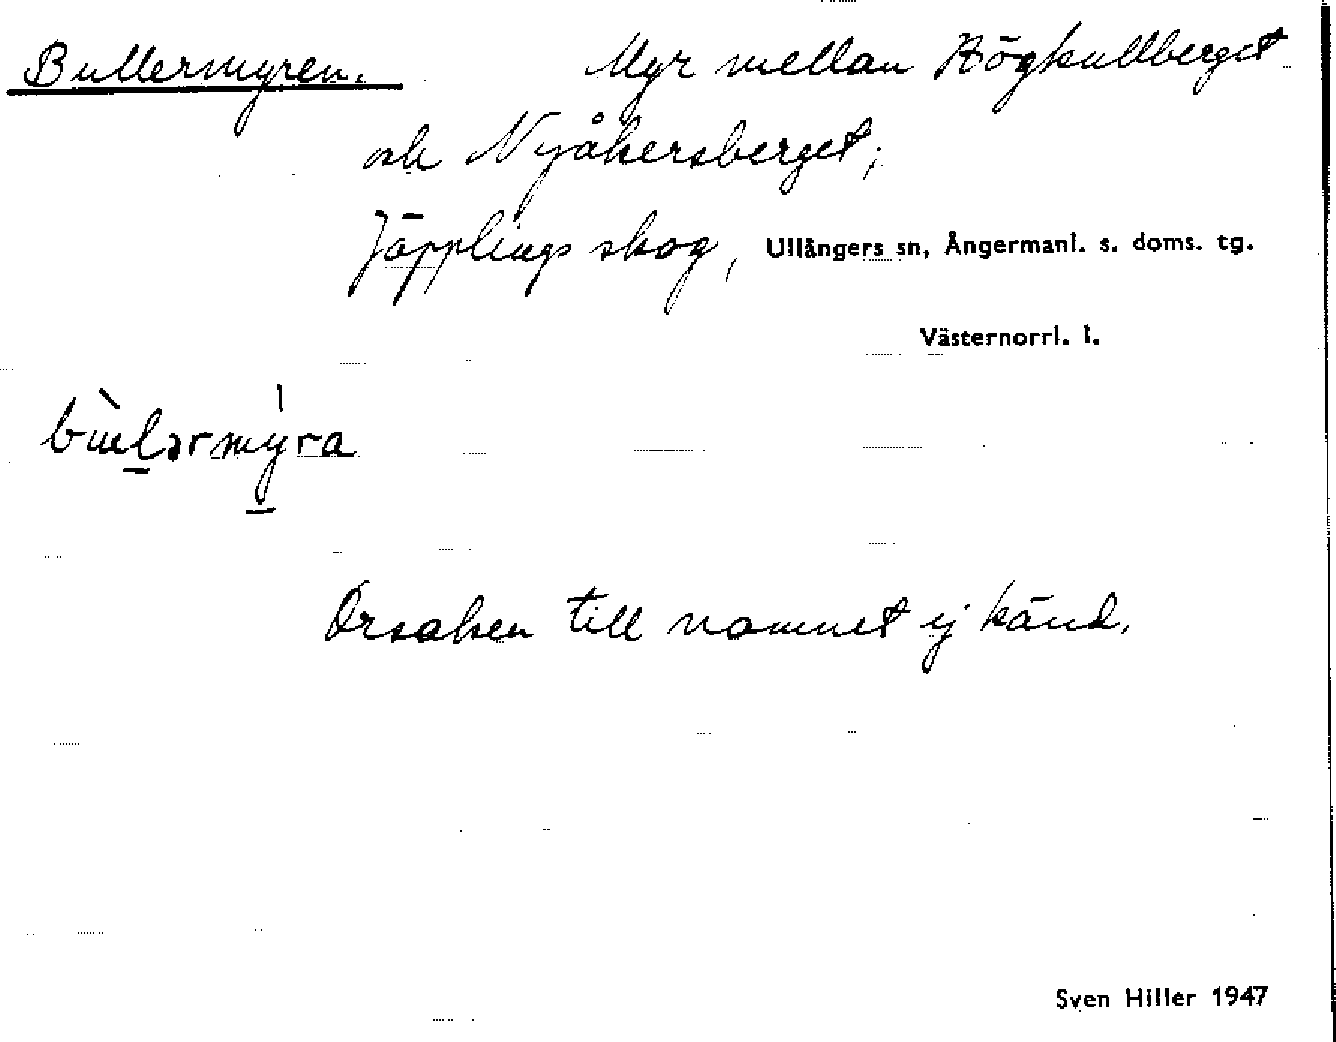 Bullermyren. Myr mellan Högkullberget
och Nyåkersberget;
Jäpplings skog, Ullångers sn, Ångermanl. s. doms. tg.
Västernorrl. l.
Orsaken till namnet ej känd.
Sven Hiller 1947